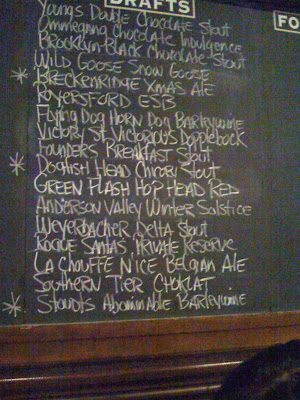 DRAFTS
FO
Youngs Double Chocolate Stout
Ommegang Chocolate Indulgence
Brooklyn Black Chocolate Stout
Wild Goose Snow Goose
* Breckenridge Xmas Ale
Royersford ESB
Flying Dog Horn Dog Barleywine
Victory St. Victorious Dopplebock
Founders Breakfast Stout
* Dogfish Head Chicory Stout
Green Flash Hop Head Red
Anderson Valley Winter Solstice
Weyerbacher Delta Stout
Rogue Santas Private Reserve
La Chouffe N'ice Belgian Ale
Southern Tier Choklat
* Stoudts Abominable Barleywine